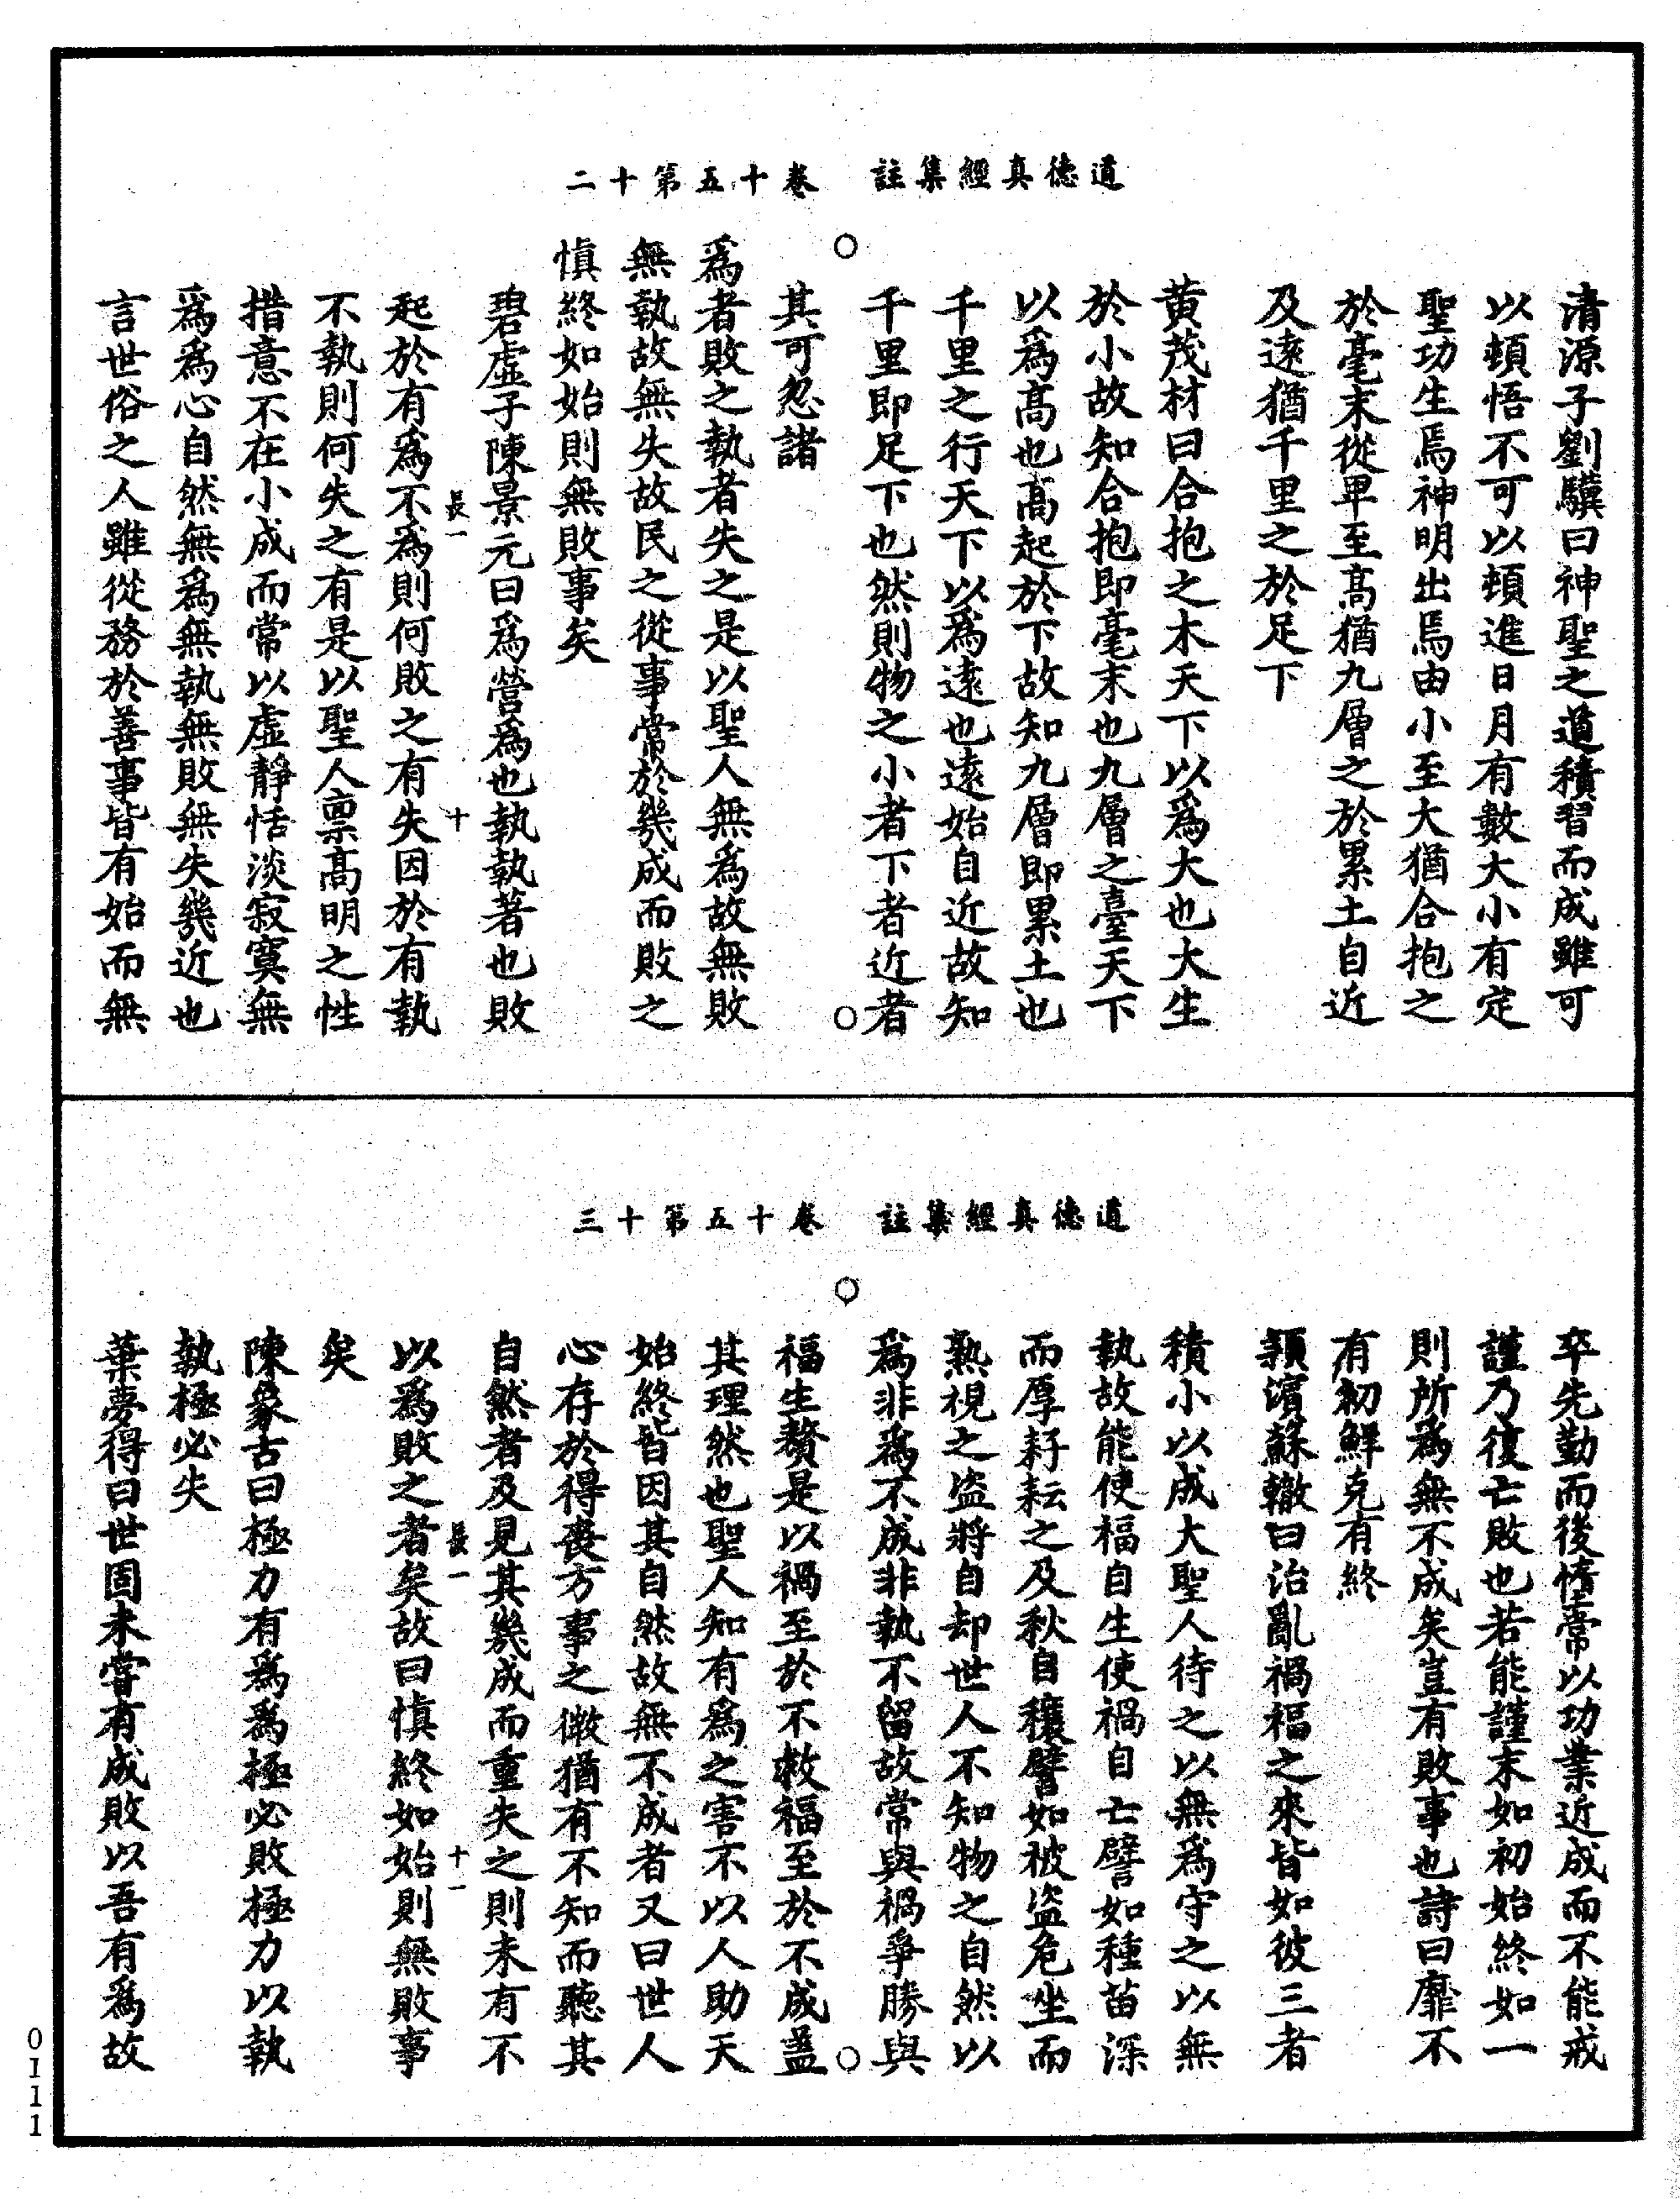 道德真經集註　卷十五第十二
清源子劉驥曰神聖之道積習而成雖可
以頓悟不可以頓進日月有數大小有定
聖功生焉神明出焉由小至大猶合抱之
於毫末從卑至高猶九層之於累土自近
及遠猶千里之於足下
黃茂材曰合抱之木天下以為大也大生
於小故知合抱即毫末也九層之臺天下
以為高也高起於下故知九層即累土也
千里之行天下以為遠也遠始自近故知
千里即足下也然則物之小者下者近者
其可忽諸
為者敗之執者失之是以聖人無為故無敗
無執故無失故民之從事常於幾成而敗之
慎終如始則無敗事矣
碧虛子陳景元曰為營為也執執著也敗
長一　十
起於有為不為則何敗之有失因於有執
不執則何失之有是以聖人稟高明之性
措意不在小成而常以虛靜恬淡寂寞無
為為心自然無為無執無敗無失幾近也
言世俗之人雖從務於善事皆有始而無
道德真經集註　卷十五第十三
卒先勤而後惰常以功業近成而不能戒
謹乃復亡敗也若能謹末如初始終如一
則所為無不成矣豈有敗事也詩曰靡不
有初鮮克有終
潁濱蘇轍曰治亂禍福之來皆如彼三者
積小以成大聖人待之以無為守之以無
執故能使福自生使禍自亡譬如種苗深
而厚耔耘之及秋自穰譬如被盜危坐而
熟視之盜將自却世人不知物之自然以
為非為不成非執不留故常與禍爭勝與
福生贅是以禍至於不救福至於不成蓋
其理然也聖人知有為之害不以人助天
始終皆因其自然故無不成者又曰世人
心存於得喪方事之微猶有不知而聽其
自然者及見其幾成而重失之則未有不
長一　十一
以為敗之者矣故曰慎終如始則無敗事
矣
陳象古曰極力有為為極必敗極力以執
執極必失
葉夢得曰世固未嘗有成敗以吾有為故
0111